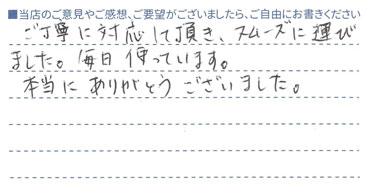 ■当店のご意見やご感想、ご要望がございましたら、ご自由にお書きください
ご丁寧に対応して頂き、スムーズに運び
ました。毎日使っています。
本当にありがとうございました。